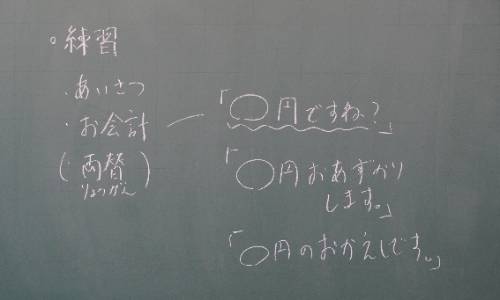 。練習
・あいさつ
・お会計 ― 「○円ですね?」
(・両替)
りょうがえ
「○円おあずかり
します。」
「○円のおかえしです。」